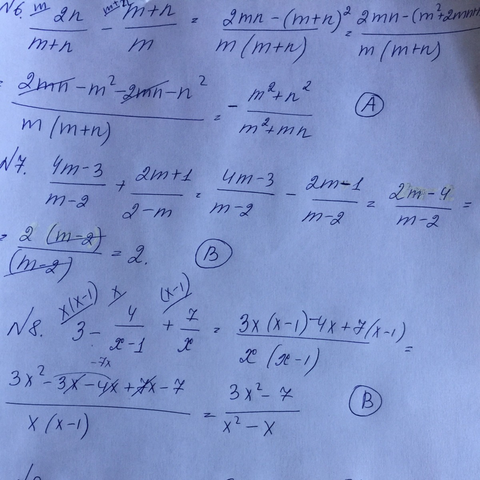 N6. m 2n/(m+n) - m+n m+n/m = (2mn-(m+n)²)/(m(m+n)) = (2mn-(m²+2mn+n
= (2mn-m²-2mn-n²)/(m(m+n)) = - (m²+n²)/(m²+mn) (A)
N7. (4m-3)/(m-2) + (2m+1)/(2-m) = (4m-3)/(m-2) - (2m-1)/(m-2) = (2m-4)/(m-2) =
= 2(m-2)/(m-2) = 2. (B)
x(x-1) x (x-1)
N8. 3 - 4/(x-1) + 7/x = (3x(x-1)-4x+7(x-1))/(x(x-1)) =
-7x
(3x²-3x-4x+7x-7)/(x(x-1)) = (3x²-7)/(x²-x) (B)